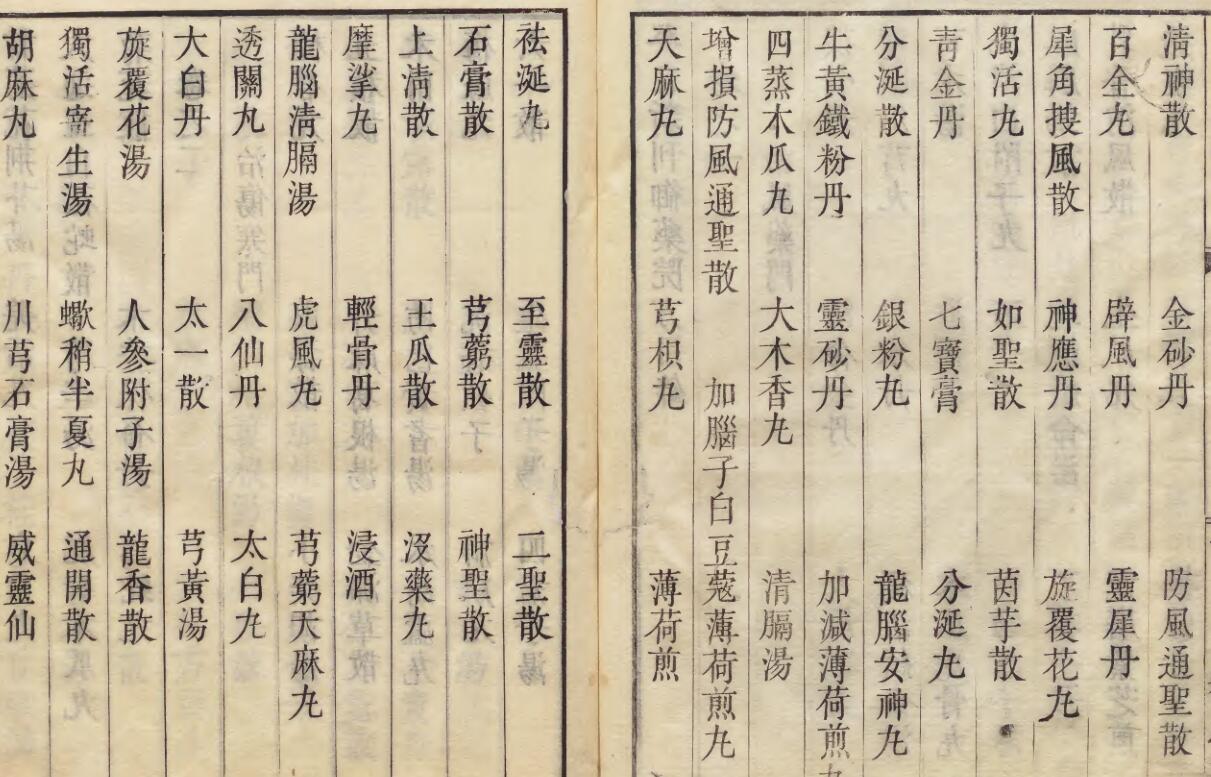 清神散 金砂丹 防風通聖散
百全丸 辟風丹 靈犀丹
犀角搜風散 神應丹 旋覆花丸
獨活丸 如聖散 茵芋散
青金丹 七寶膏 分涎丸
分涎散 銀粉丸 龍腦安神丸
牛黃鐵粉丹 靈砂丹 加減薄荷煎丸
四蒸木瓜丸 大木香丸 清膈湯
增損防風通聖散 加腦子白豆蔻薄荷煎丸
天麻丸 芎枳丸 薄荷煎
祛涎丸 至靈散 二聖散
石膏散 芎藭散 神聖散
上清散 王瓜散 沒藥丸
摩挲丸 輕骨丹 浸酒
龍腦清膈湯 虎風丸 芎藭天麻丸
透關丸 八仙丹 太白丸
大白丹 太一散 芎黃湯
旋覆花湯 人參附子湯 龍香散
獨活寄生湯 蠍稍半夏丸 通開散
胡麻丸 川芎石膏湯 威靈仙